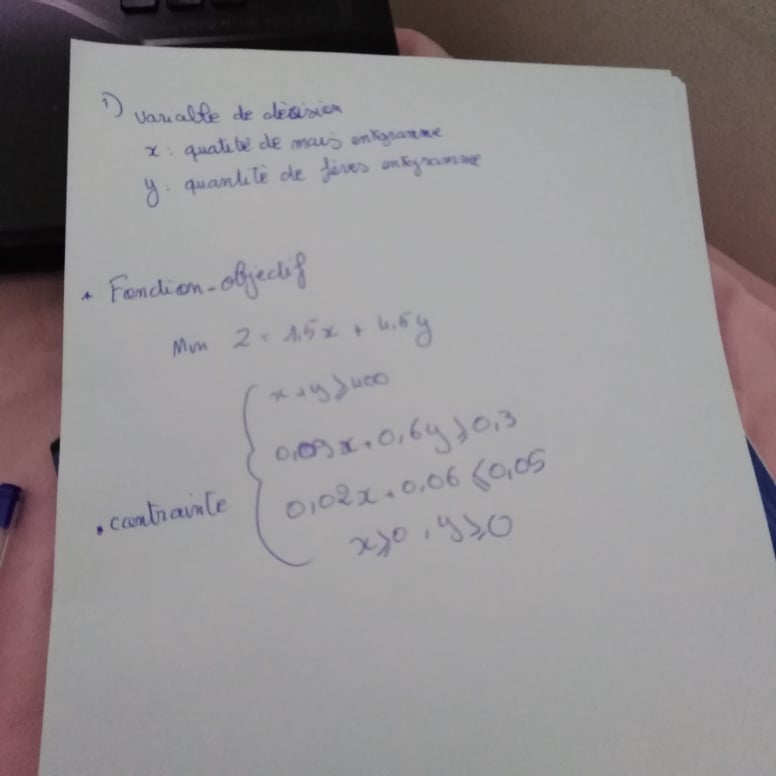 1) variable de décision
x : quatité de mais enkgramme
y : quantité de fèves enkgramme
* Fonction-objectif
Min Z = 1,5x + 4,5y
x + y ≥ 400
0,09x + 0,6y ≥ 0,3
0,02x + 0,06 ≤ 0,05
x ≥ 0, y ≥ 0
* contrainte